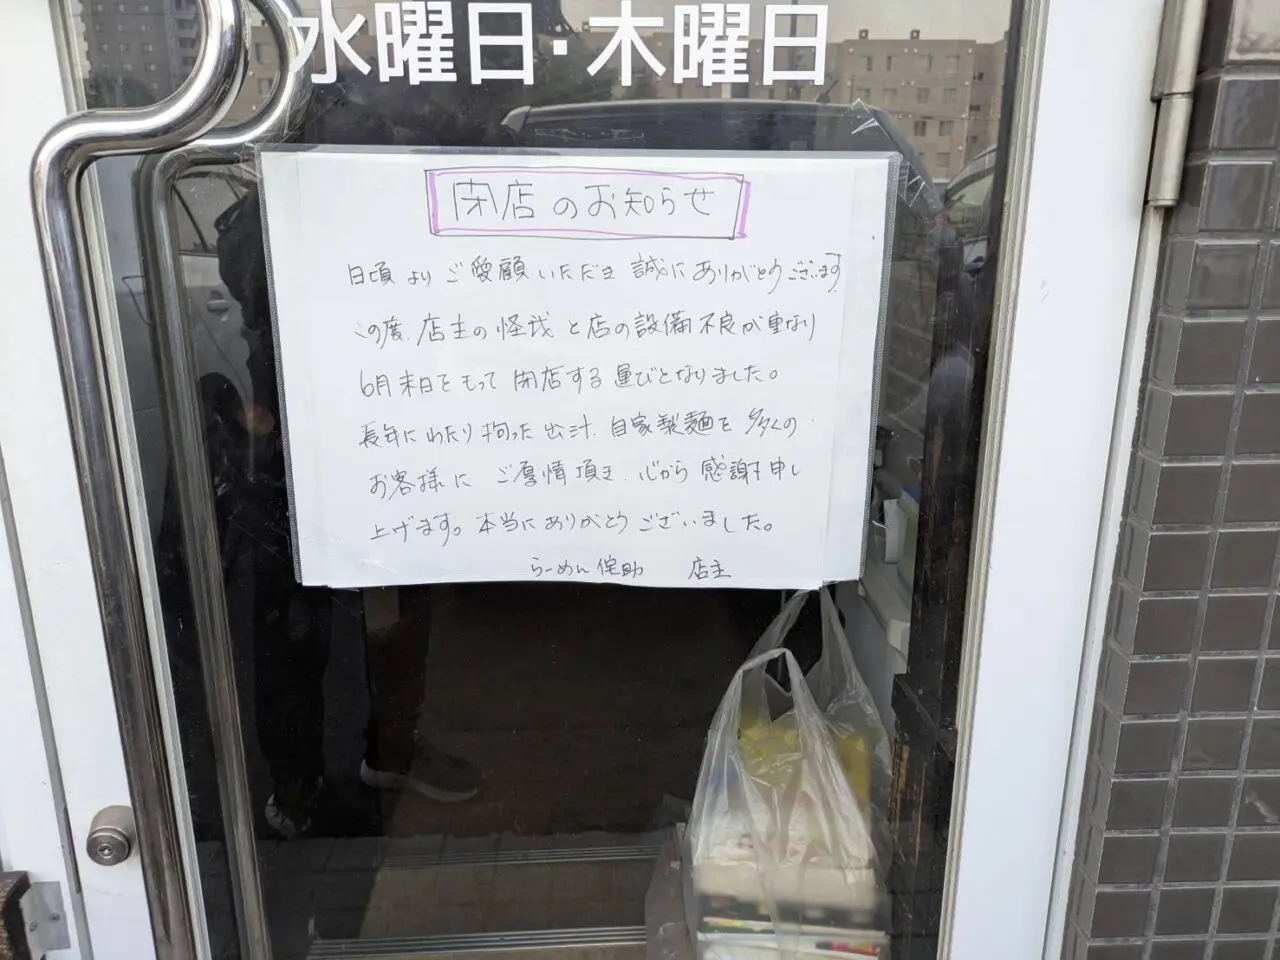 水曜日・木曜日
閉店のお知らせ
日頃よりご愛顧いただき誠にありがとうございます
この度、店主の怪我と店の設備不良が重なり
6月末日をもって閉店する運びとなりました。
長年にわたり拘った出汁、自家製麺を多くの
お客様にご厚情頂き、心から感謝申し
上げます。本当にありがとうございました。
らーめん侘助 店主